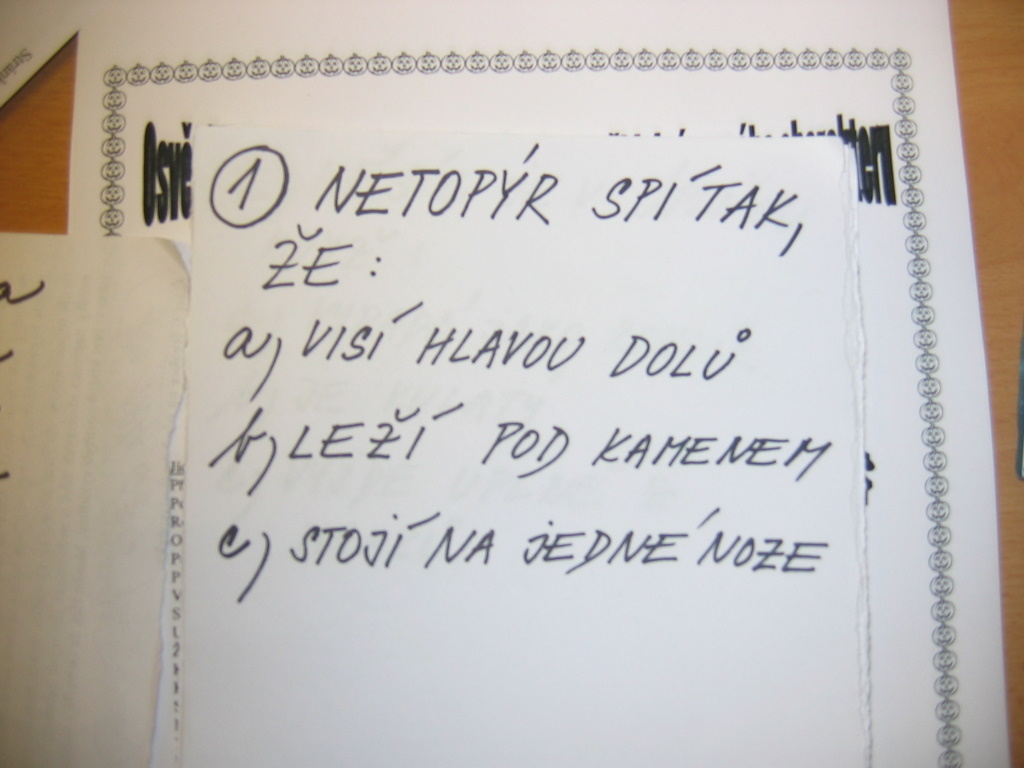 1 NETOPÝR SPÍ TAK,
ŽE:
a) VISÍ HLAVOU DOLŮ
b) LEŽÍ POD KAMENEM
c) STOJÍ NA JEDNÉ NOZE